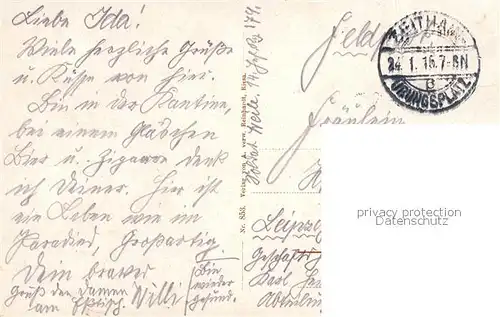 Liebe Ida!
Viele herzliche Grüße
u. Küsse von hier.
Bin in der Kantine,
bei einem Gläschen
Bier u. Zigarre denk
ich Deiner. Hier ist
ein Leben wie im
Paradies, Großartig.
Dein braver
Willi
Gruß den Damen
am
Bin
wieder
gesund.
Nr. 853. Verlag von A. verw. Reinhardt, Riesa.
Soldat
Feldp
ZEITHAIN
24.1.16.7-8N
c
ÜBUNGSPLATZ
Fräulein
Leipzig
Geschäft
Karl
Abteilung
privacy protection
Datenschutz